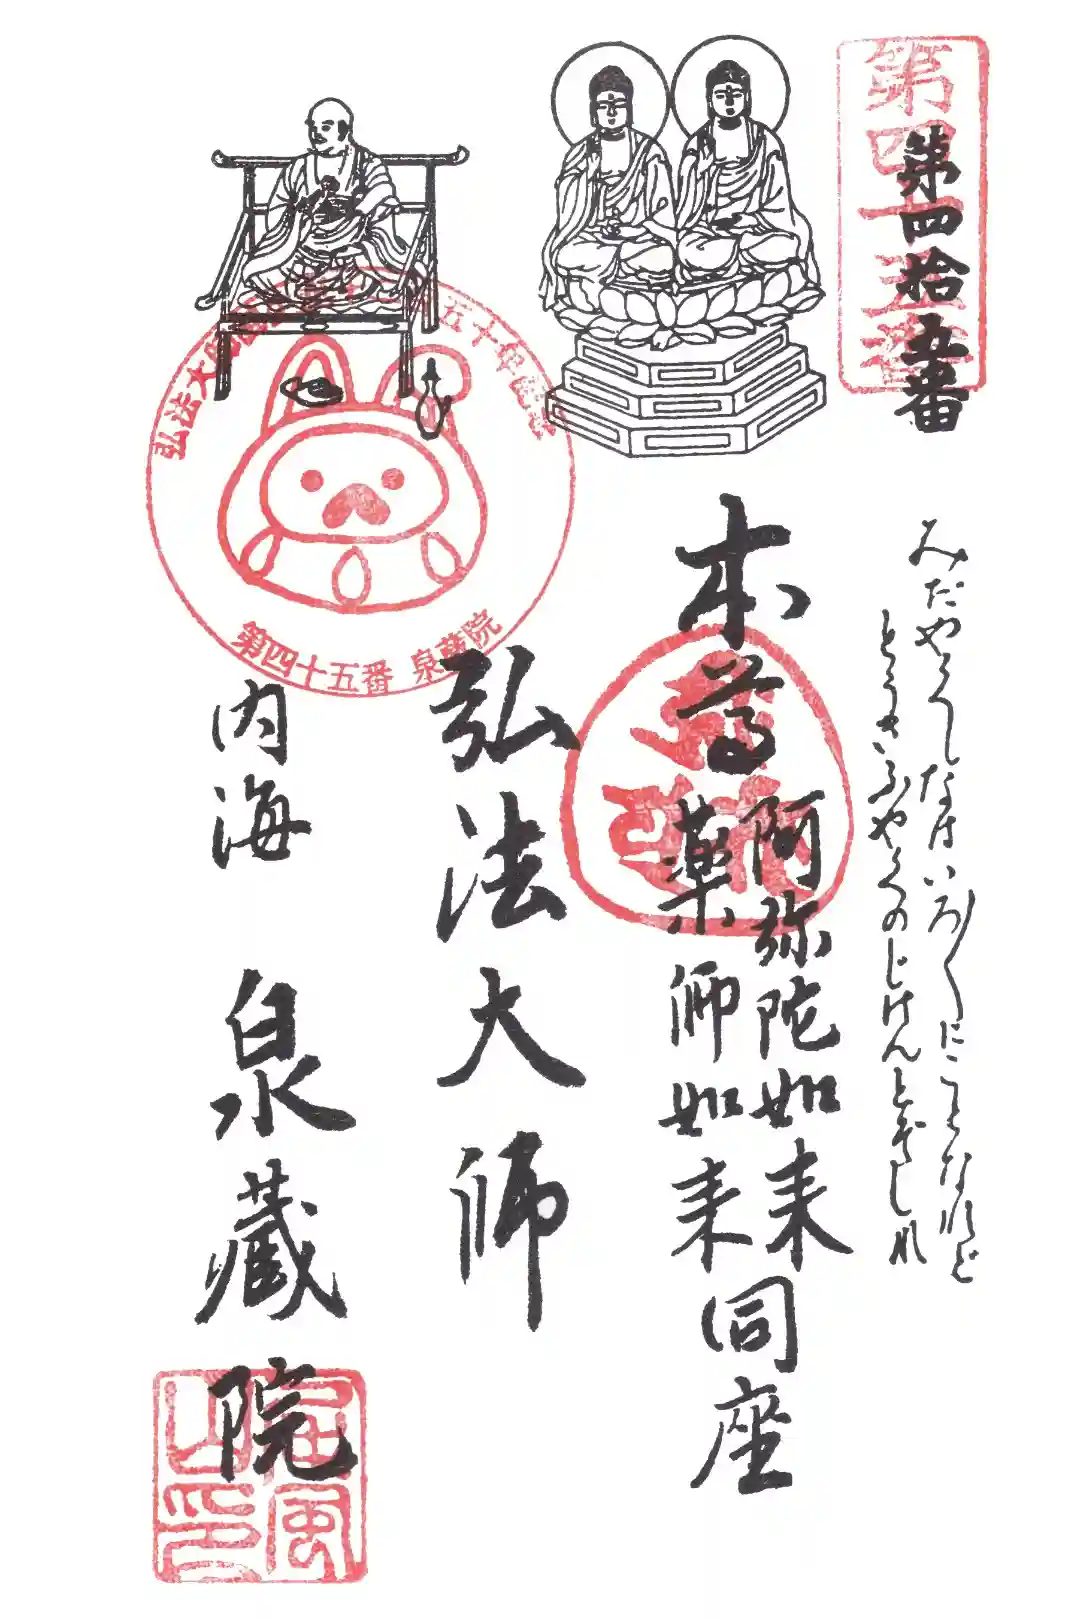 第四十五番
第四拾五番
みだやくしなはいろ〳〵にことなれど
とうさいふやくのじげんとぞしれ
本尊
阿弥陀如来
薬師如来
同座
弘法大師
第四十五番 泉蔵院
弘法大師
内海 泉蔵院